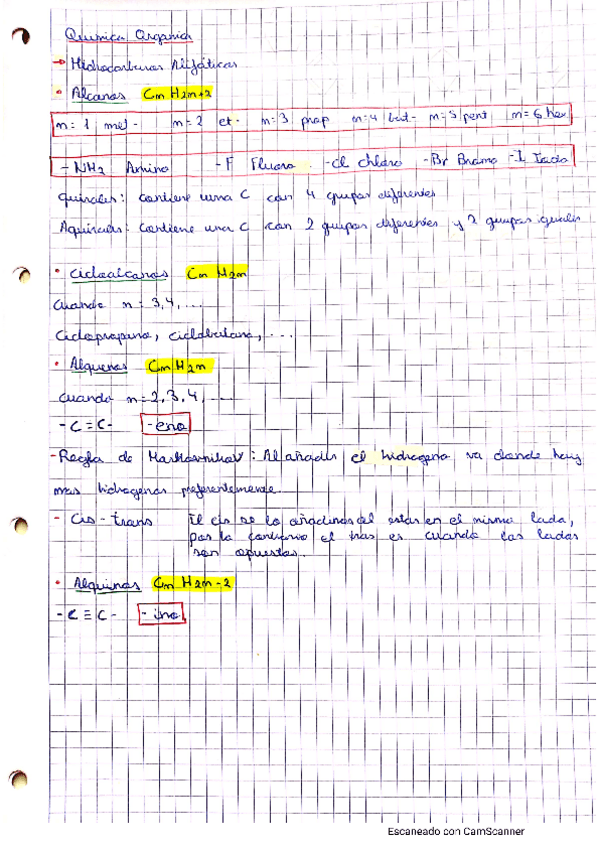 Quimica Organica
→ Hidrocarburos Alifáticos
• Alcanos Cm H2m+2
m=1 met- m=2 et- m=3 prop m=4 but- m=5 pent m=6 hex
-NH2 Amino -F Fluoro -Cl Chloro -Br Bromo -I Iodo
quirales: contiene una C con 4 grupos diferentes
Aquirales: contiene una C con 2 grupos diferentes y 2 grupos iguales
• Cicloalcanos Cm H2m
Cuando n = 3,4, ...
Ciclopropano, ciclobutano, ...
• Alquenos Cm H2m
Cuando n=2,3,4, ...
-C=C- -eno
-Regla de Markovnikov: Al añadir el hidrogeno va donde hay
mas hidrogenos preferentemente.
- Cis-trans El cis se lo añadimos al estar en el mismo lado,
por lo contrario el tras es cuando los lados
son opuestos.
• Alquinos Cm H2m-2
-C≡C- -ino
Escaneado con CamScanner